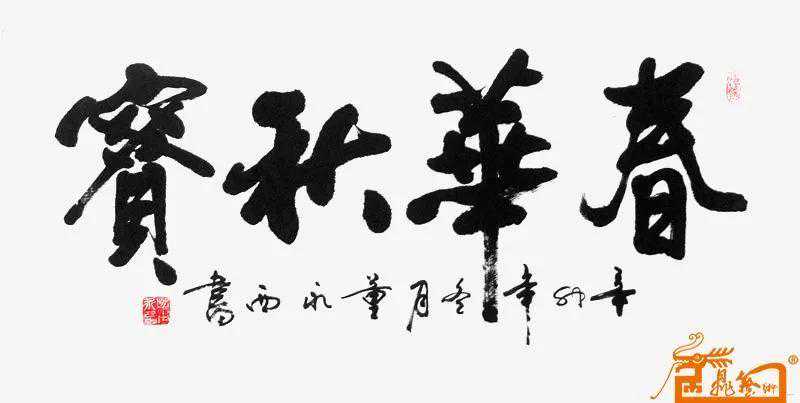 春華秋實
辛卯年冬月董永西書